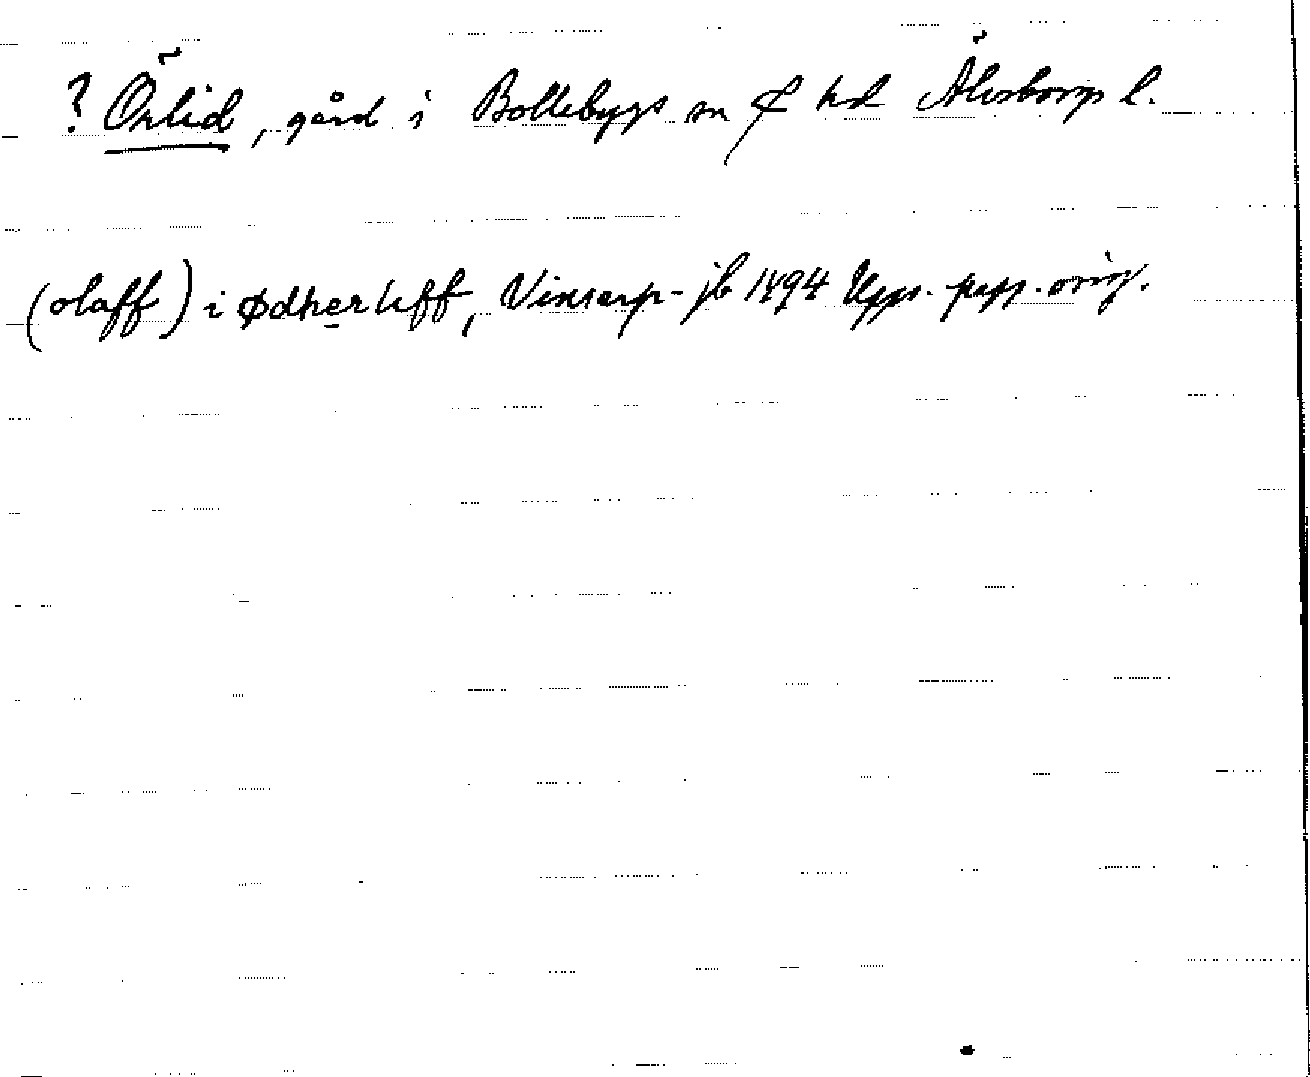 ? Örlid, gård i Bollebygs sn & hd Älvsborgs l.
(olaff) i ødherliff, Vinsarp-jb 1494 Upps. papp. orig.